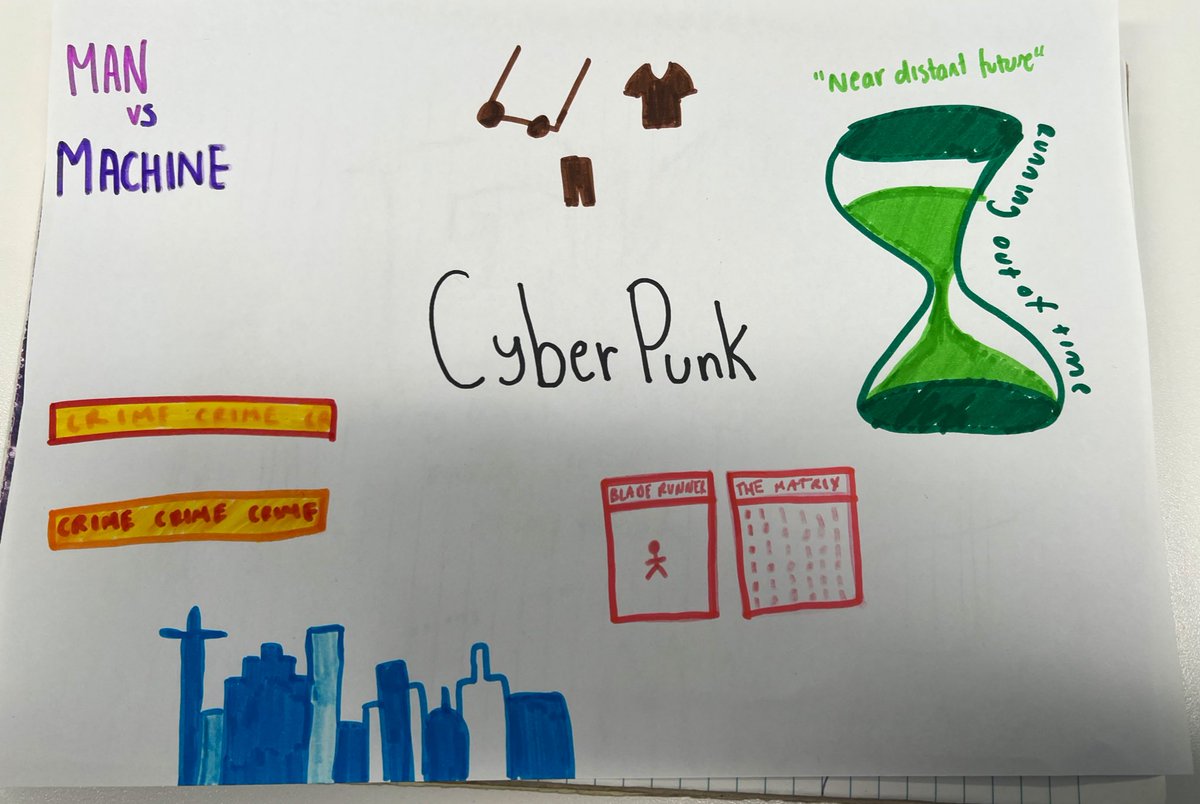 MAN
vs
MACHINE
"Near distant future"
Running out of time
CyberPunk
CRIME CRIME CR
CRIME CRIME CRIME
BLADE RUNNER
THE MATRIX